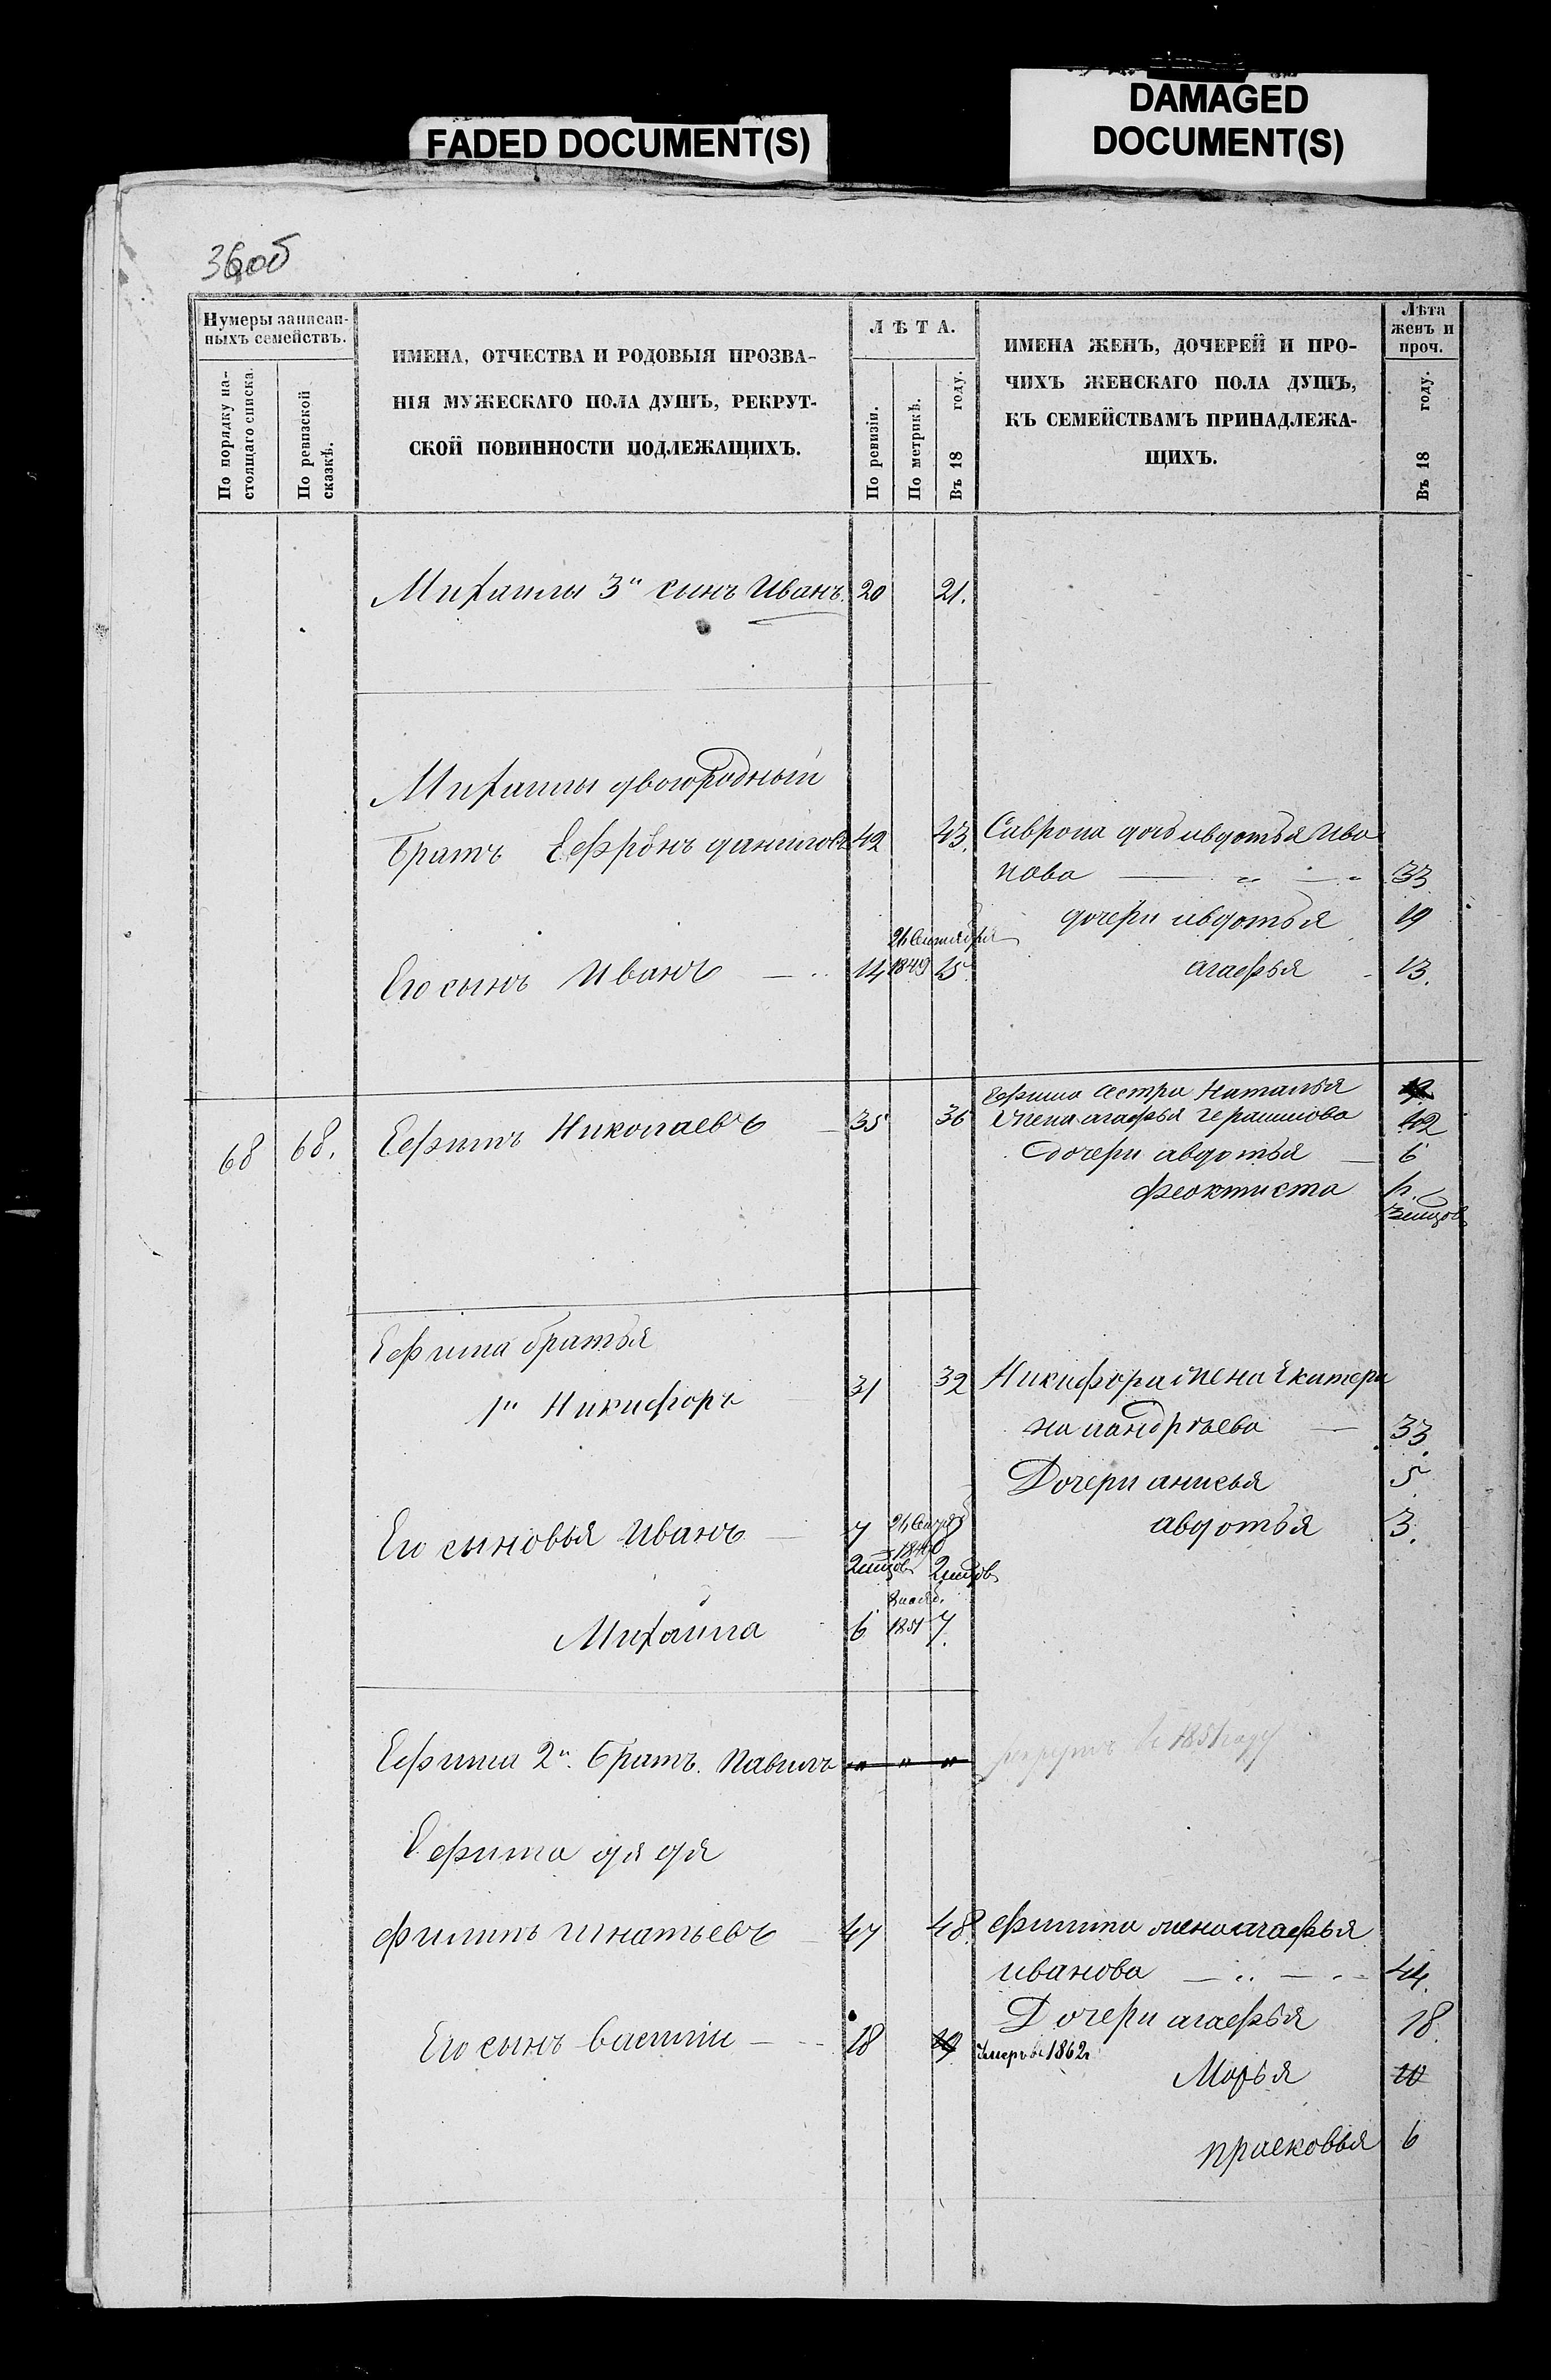 FADED DOCUMENT(S)
DAMAGED
DOCUMENT(S)
36об
Нумеры записан-
ныхъ семействъ.
По порядку на-
стоящаго списка.
По ревизской
сказкѣ.
ИМЕНА, ОТЧЕСТВА И РОДОВЫЯ ПРОЗВА-
НІЯ МУЖЕСКАГО ПОЛА ДУШЪ, РЕКРУТ-
СКОЙ ПОВИННОСТИ ПОДЛЕЖАЩИХЪ.
ЛѢТА.
По ревизіи.
По метрикѣ.
Въ 18 году.
ИМЕНА ЖЕНЪ, ДОЧЕРЕЙ И ПРО-
ЧИХЪ ЖЕНСКАГО ПОЛА ДУШЪ,
КЪ СЕМЕЙСТВАМЪ ПРИНАДЛЕЖА-
ЩИХЪ.
Лѣта
женъ и
проч.
Въ 18 году.
Михаилы 3й сынъ Иванъ. 20 21.
Михаилы двоюродный
братъ 42 43. авдотья Ива
нова 33
дочери авдотья 19
Его сынъ Иванъ 14 1849 15 агафья 13.
Ефима сестра Наталья
68 68. Ефимъ Николаевъ 35 36 жена агафья 42
дочери авдотья 6
феоктиста
Ефима братья
1й Никифоръ 31 32 Никифора жена Екатери
на андрѣева 33.
Дочери анисья 5
Его сыновья Иванъ 7 авдотья 3.
Михаила 6 1851 7.
Ефима 2й братъ Павилъ " " " въ 1851 году
Ефима дядя
филипъ игнатьевъ 47 48. филипа жена агафья
иванова 44.
Дочери агафья 18.
Его сынъ василий 18 19 умеръ въ 1862г
Марья 10
прасковья 6